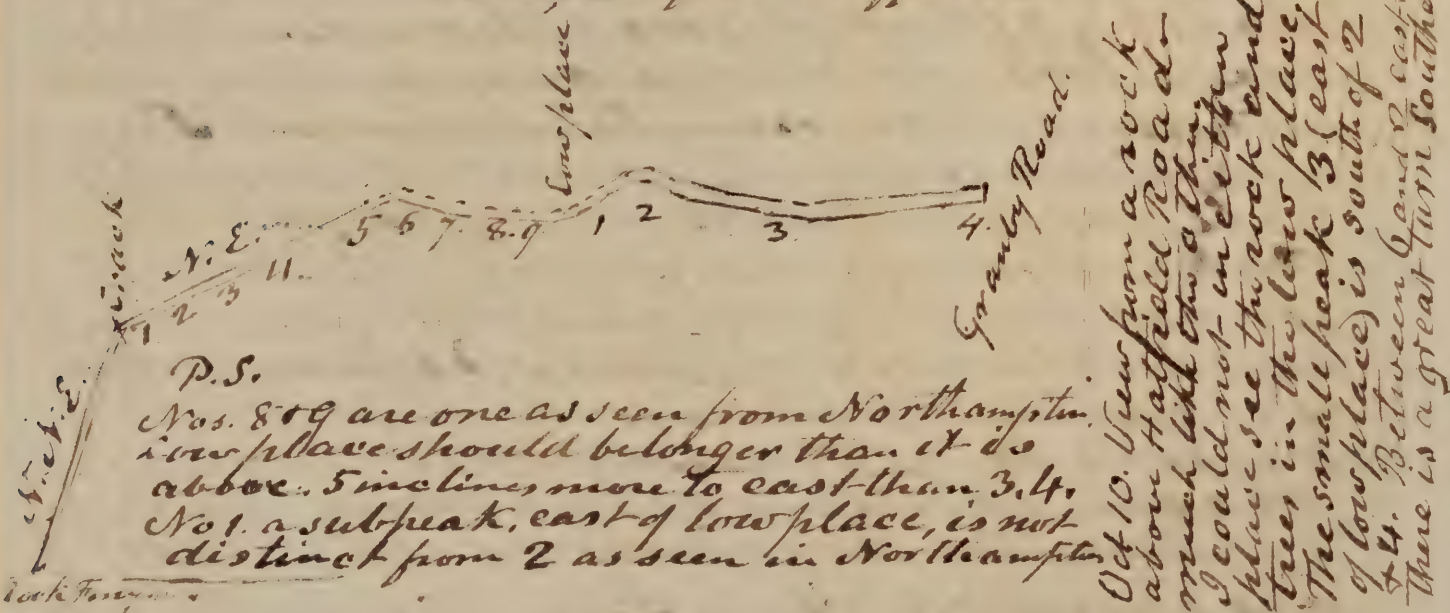 Low place
Track
N. E.
5 6 7. 8. 9 1 2 3. 4.
1 2 3 11.
Granby Road.
N. N. E.
P.S.
Nos. 8 & 9 are one as seen from Northampton.
Low place should be longer than it is
above. 5 inclines more to east than 3, 4.
No 1. a subpeak, east of low place, is not
distinct from 2 as seen in Northampton
Oct 10. View from a rock
above Hatfield Road
much like the other.
I could not in either
place see the rock and
trees in the low place
The small peak 3 (east
of low place) is south of 2
& 4. Between 6 and 2 east
there is a great turn southe